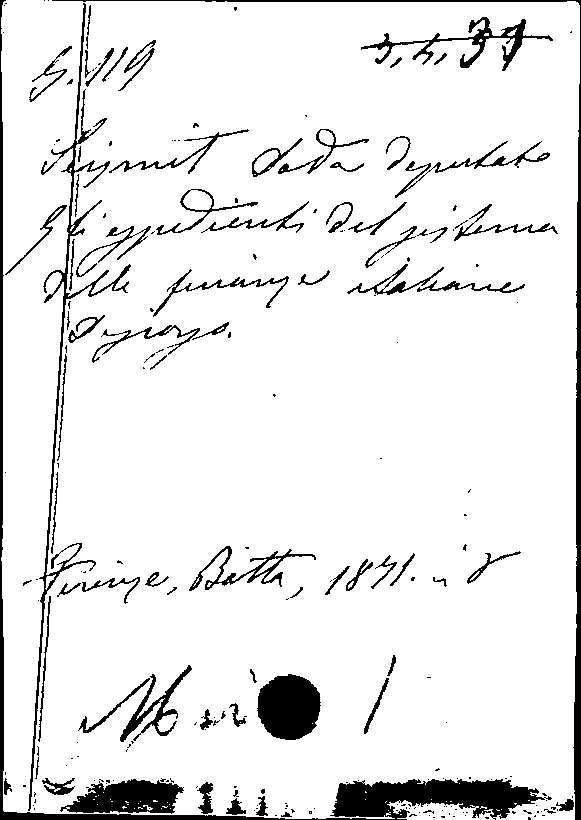 G. 119
3, 4, 31
Seismit Doda deputato
Gli espedienti del sistema
delle finanze italiane
Firenze, Botta, 1871. in 8